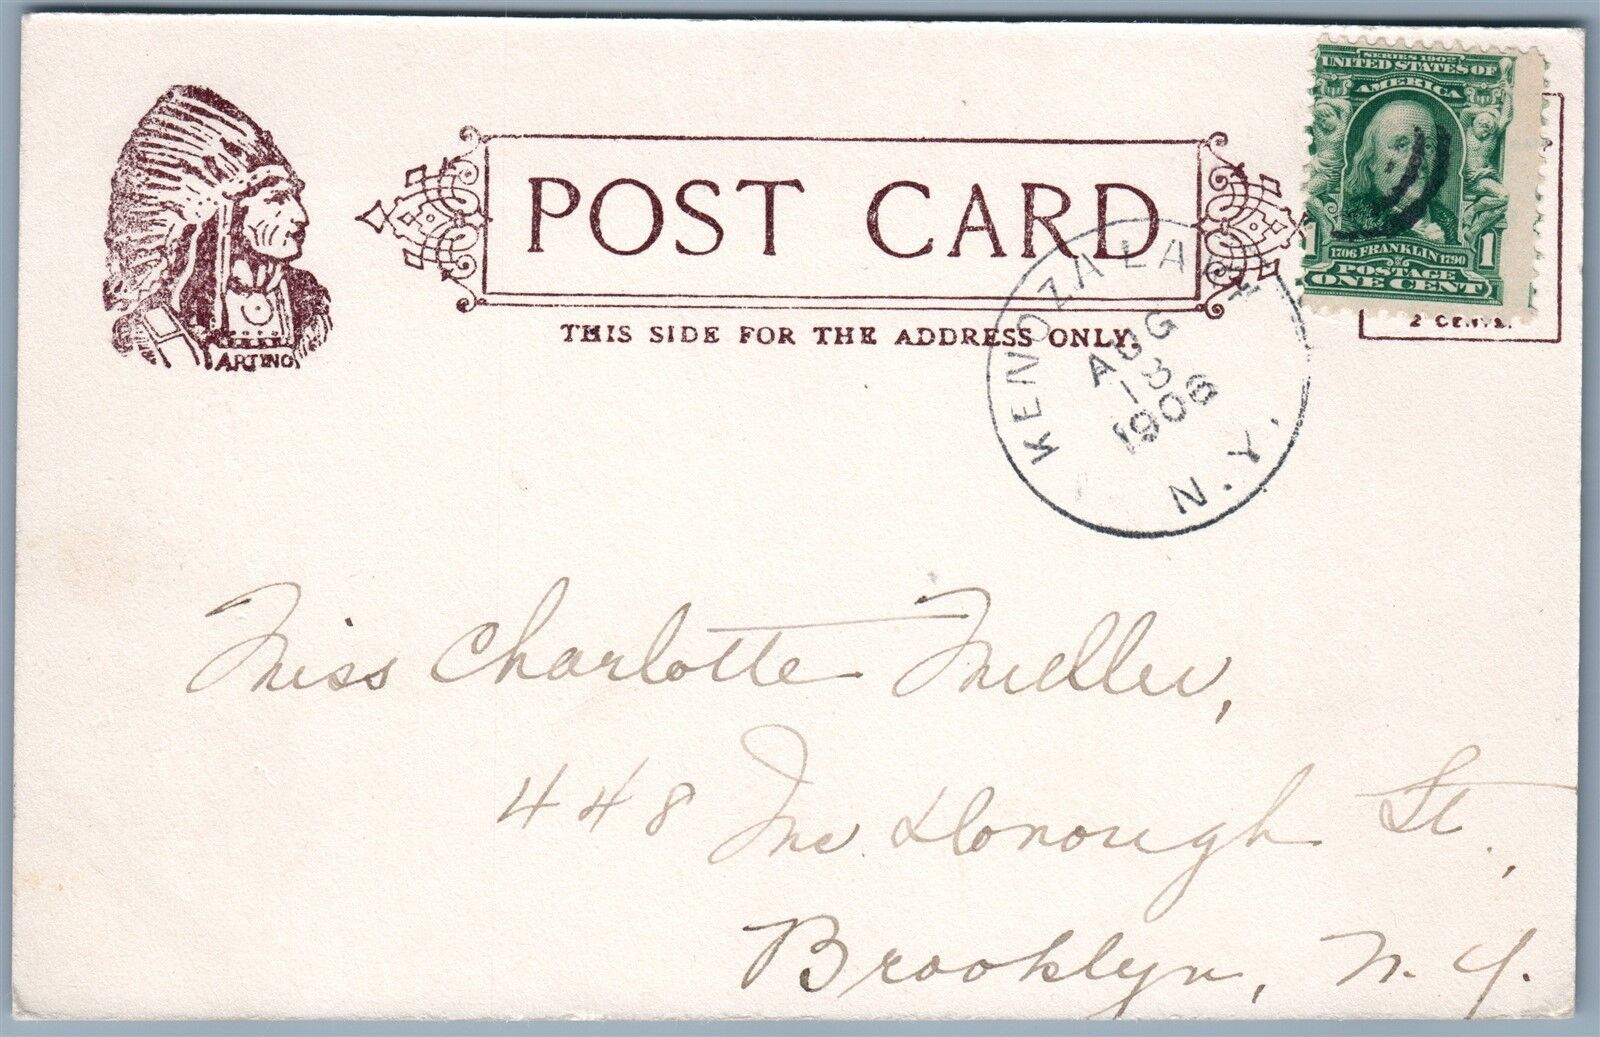 ARTINO
POST CARD
THIS SIDE FOR THE ADDRESS ONLY.
SERIES 1902
UNITED STATES OF
AMERICA
1706 FRANKLIN 1790
1 1
POSTAGE
ONE CENT
2 CENTS.
KENOZA LAKE
AUG
13
1906
N.Y.
Miss Charlotte Miller,
448 Mc Donough St.,
Brooklyn, N.Y.